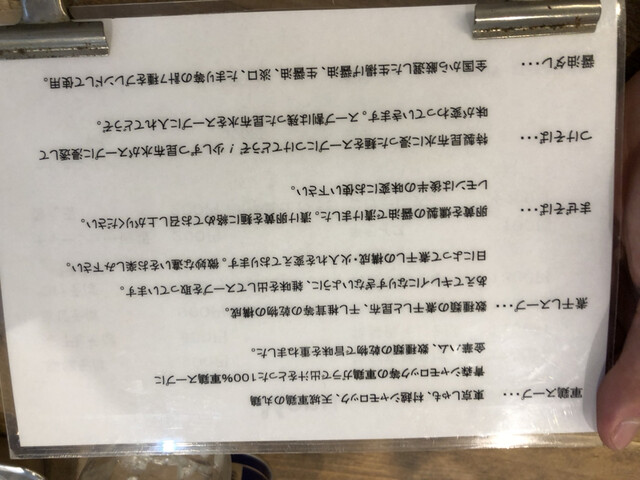 軍鶏スープ・・・ 東京しゃも、村越シャモロック、天城軍鶏の丸鶏
青森シャモロック等の軍鶏ガラで出汁をとった100%軍鶏スープに
金華ハム、数種類の乾物で旨味を重ねました。
煮干しスープ・・・ 数種類の煮干しと昆布、干し椎茸等の乾物の構成。
あえてキレイになりすぎないように、雑味を出してスープを取っています。
日によって煮干しの構成・火入れを変えております。微妙な違いをお楽しみ下さい。
まぜそば・・・ 卵黄を燻製の醤油で漬けました。漬け卵黄を麺に絡めてお召し上がりください。
レモンは後半の味変にお使い下さい。
つけそば・・・ 特製昆布水に浸った麺をスープにつけてどうぞ!少しずつ昆布水がスープに浸透して
味が変わっていきます。スープ割は残った昆布水をスープに入れてどうぞ。
醤油ダレ・・・ 全国から厳選した生揚げ醤油、生醤油、淡口、たまり等の計7種をブレンドして使用。